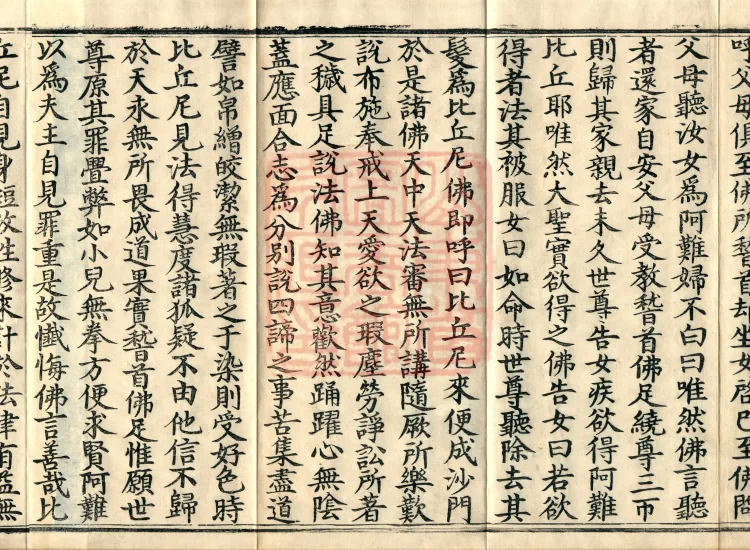 呼父母俱至佛所稽首却坐女啓已至佛問
父母聽汝女爲阿難婦不白曰唯然佛言聽
者還家自安父母受教稽首佛足繞尊三帀
則歸其家親去未久世尊告女疾欲得阿難
比丘耶唯然大聖實欲得之佛告女曰若欲
得者法其被服女曰如命時世尊聽除去其
髮爲比丘尼佛即呼曰比丘尼來便成沙門
於是諸佛天中天法審無所講隨厥所樂歎
說布施奉戒上天愛欲之瑕塵勞諍訟所著
之穢具足說法佛知其意歡然踊躍心無陰
蓋應面合志爲分別說四諦之事苦集盡道
譬如帛繒皎潔無瑕著之于染則受好色時
比丘尼見法得慧度諸狐疑不由他信不歸
於天永無所畏成道果實稽首佛足惟願世
尊原其罪舋弊如小兒無拳方便求賢阿難
以爲夫主自見罪重是故懺悔佛言善哉比
丘尼自見身短改往修來計於法律有益無